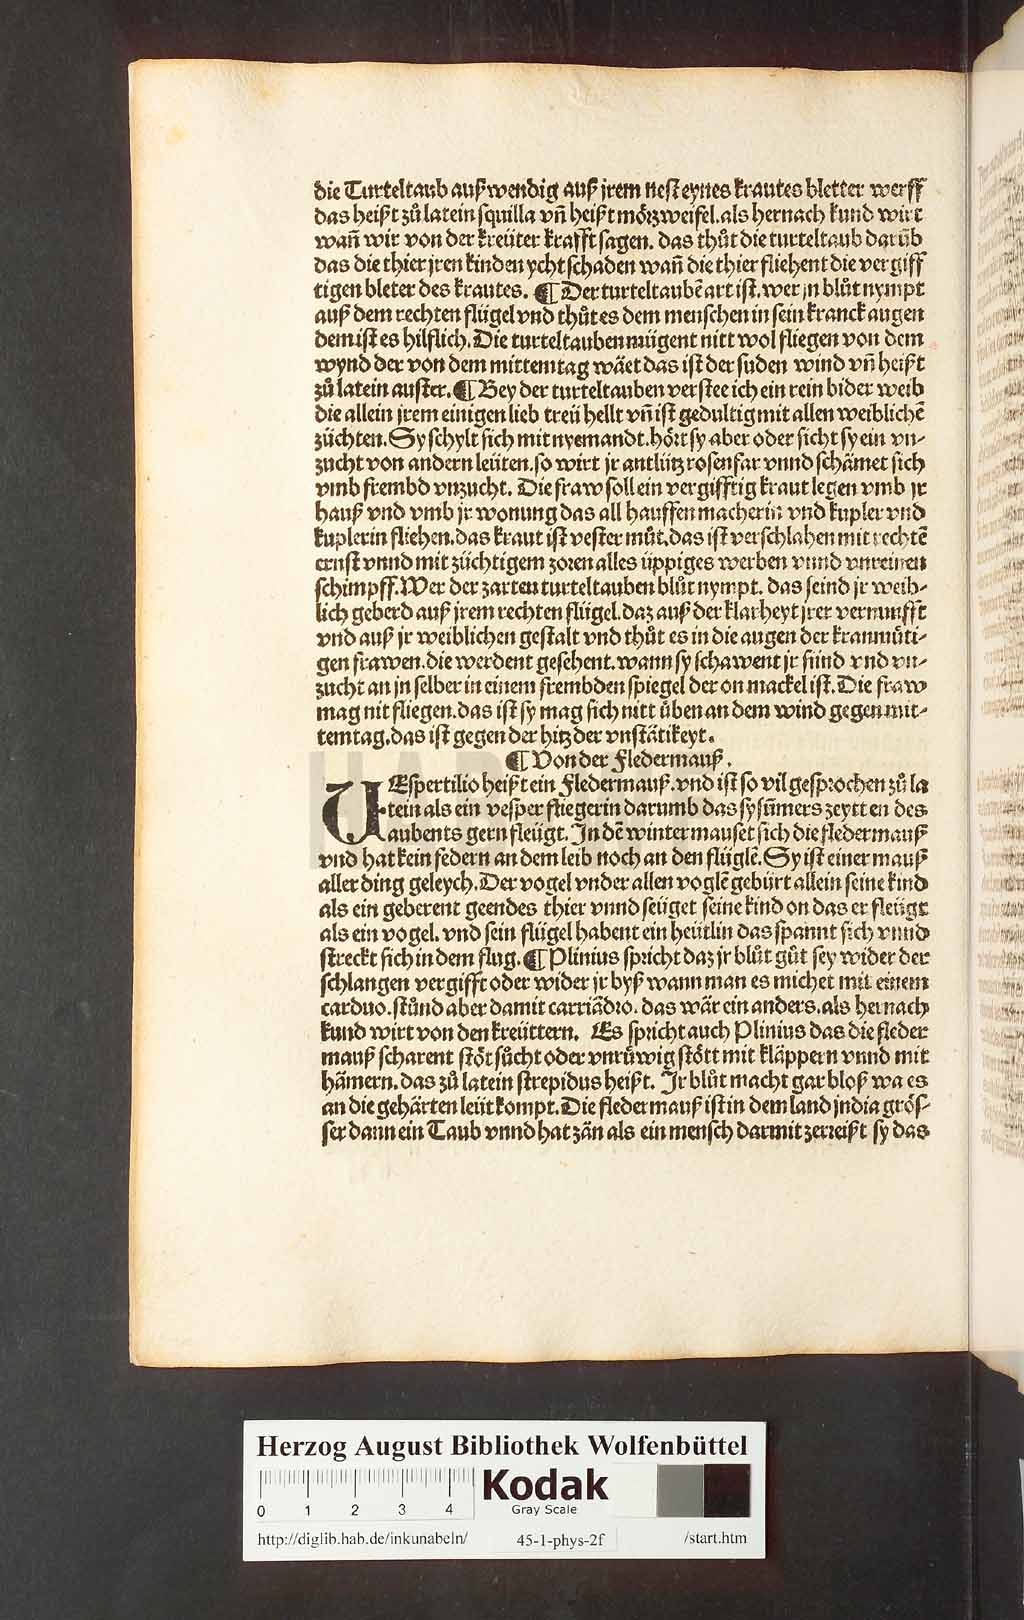 die Turteltaub außwendig auß jrem nest eynes krautes bletter werff
das heißt zů latein squilla vñ heißt mörzweifel. als hernach kund wirt
wañ wir von der kreüter krafft sagen. das thůt die turteltaub darũb
das die thier jren kinden ycht schaden wañ die thier fliehent die vergiff
tigen bleter des krautes. ¶ Der turteltaubẽ art ist. wer jn blůt nympt
auß dem rechten flügel vnd thůt es dem menschen in sein kranck augen
dem ist es hilflich. Die turteltauben mügent nitt wol fliegen von dem
wynd der von dem mittemtag wäet das ist der suden wind vñ heißt
zů latein auster. ¶ Bey der turteltauben verstee ich ein rein bider weib
die allein jrem einigen lieb treü hellt vñ ist gedultig mit allen weiblichẽ
züchten. Sy schylt sich mit nyemandt. hört sy aber oder sicht sy ein vn-
zucht von andern leüten. so wirt jr antlütz rosenfar vnnd schämet sich
vmb frembd vnzucht. Die fraw soll ein vergifftig kraut legen vmb jr
hauß vnd vmb jr wonung das all hauffen macherin vnd kupler vnd
kuplerin fliehen. das kraut ist vester můt. das ist verschlahen mit rechtẽ
ernst vnnd mit züchtigem zoren alles üppiges werben vnnd vnreinen
schimpff. Wer der zarten turteltauben blůt nympt. das seind jr weib-
lich geberd auß jrem rechten flügel. daz auß der klarheyt jrer vernunfft
vnd auß jr weiblichen gestalt vnd thůt es in die augen der kranmůti-
gen frawen. die werdent gesehent. wann sy schawent jr sünd vnd vn-
zucht an jn selber in einem frembden spiegel der on mackel ist. Die fraw
mag nit fliegen. das ist sy mag sich nitt üben an dem wind gegen mit-
temtag. das ist gegen der hitz der vnstätikeyt.
¶ Von der Fledermauß.
VEspertilio heißt ein Fledermauß. vnd ist so vil gesprochen zů la
tein als ein vesper fliegerin darumb das sy sũmers zeytten des
aubents gern fleügt. In dẽ winter mauset sich die fledermauß
vnd hat kein federn an dem leib noch an den flüglẽ. Sy ist einer mauß
aller ding geleych. Der vogel vnder allen voglẽ gebürt allein seine kind
als ein geberent geendes thier vnnd seüget seine kind on das er fleügt
als ein vogel. vnd sein flügel habent ein heütlin das spannt sich vnnd
streckt sich in dem flug. ¶ Plinius spricht daz jr blůt gůt sey wider der
schlangen vergifft oder wider jr byß wann man es michet mit einem
carduo. stůnd aber damit carriãdro. das wär ein anders. als hernach
kund wirt von den kreüttern. Es spricht auch Plinius das die fleder
mauß scharent stöt sůcht oder vnrůwig stött mit kläppern vnnd mit
hämern. das zů latein strepidus heißt. Ir blůt macht gar bloß wa es
an die gehärten leüt kompt. Die fledermauß ist in dem land jndia grös-
ser dann ein Taub vnnd hat zän als ein mensch darmit zerreißt sy das
HAB
Herzog August Bibliothek Wolfenbüttel
0 1 2 3 4
Kodak
Gray Scale
http://diglib.hab.de/inkunabeln/ 45-1-phys-2f /start.htm